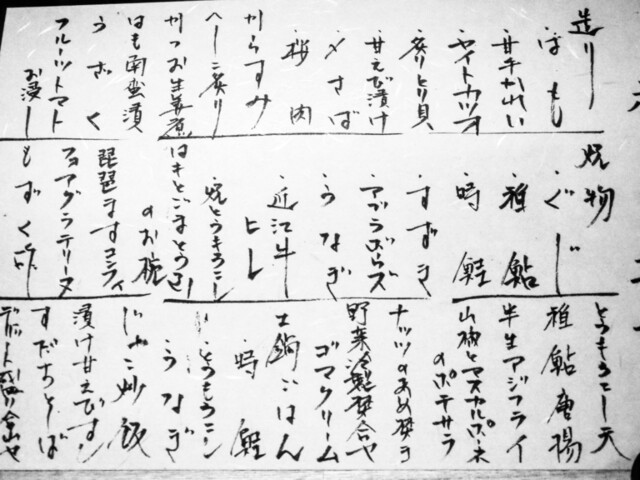 造り
・はも
・甘手かれい
・ケイトカツオ
・炙りとり貝
・甘えび漬け
・〆さば
・桜肉
からすみ
へしこ炙り
かつお生姜煮
はも南蛮漬
うざく
フルーツトマト
お浸し
焼物
・ぐじ
・稚鮎
・時鮭
・すずき
・アブラボウズ
・うなぎ
・近江牛
ヒレ
・焼とうもろこし
はもとごまとうふ
のお椀
琵琶ますユッケ
フォアグラテリーヌ
もずく酢
とうもろこし天
稚鮎唐揚
半生アジフライ
山椒とマスカルポーネ
のポテサラ
ナッツのあめ焚き
野菜冷製焚合せ
ゴマクリーム
土鍋ごはん
・時鮭
・とうもろこし
・うなぎ
じゃこ炒飯
漬け甘えびすし
すだちそば
デザート盛り合せ